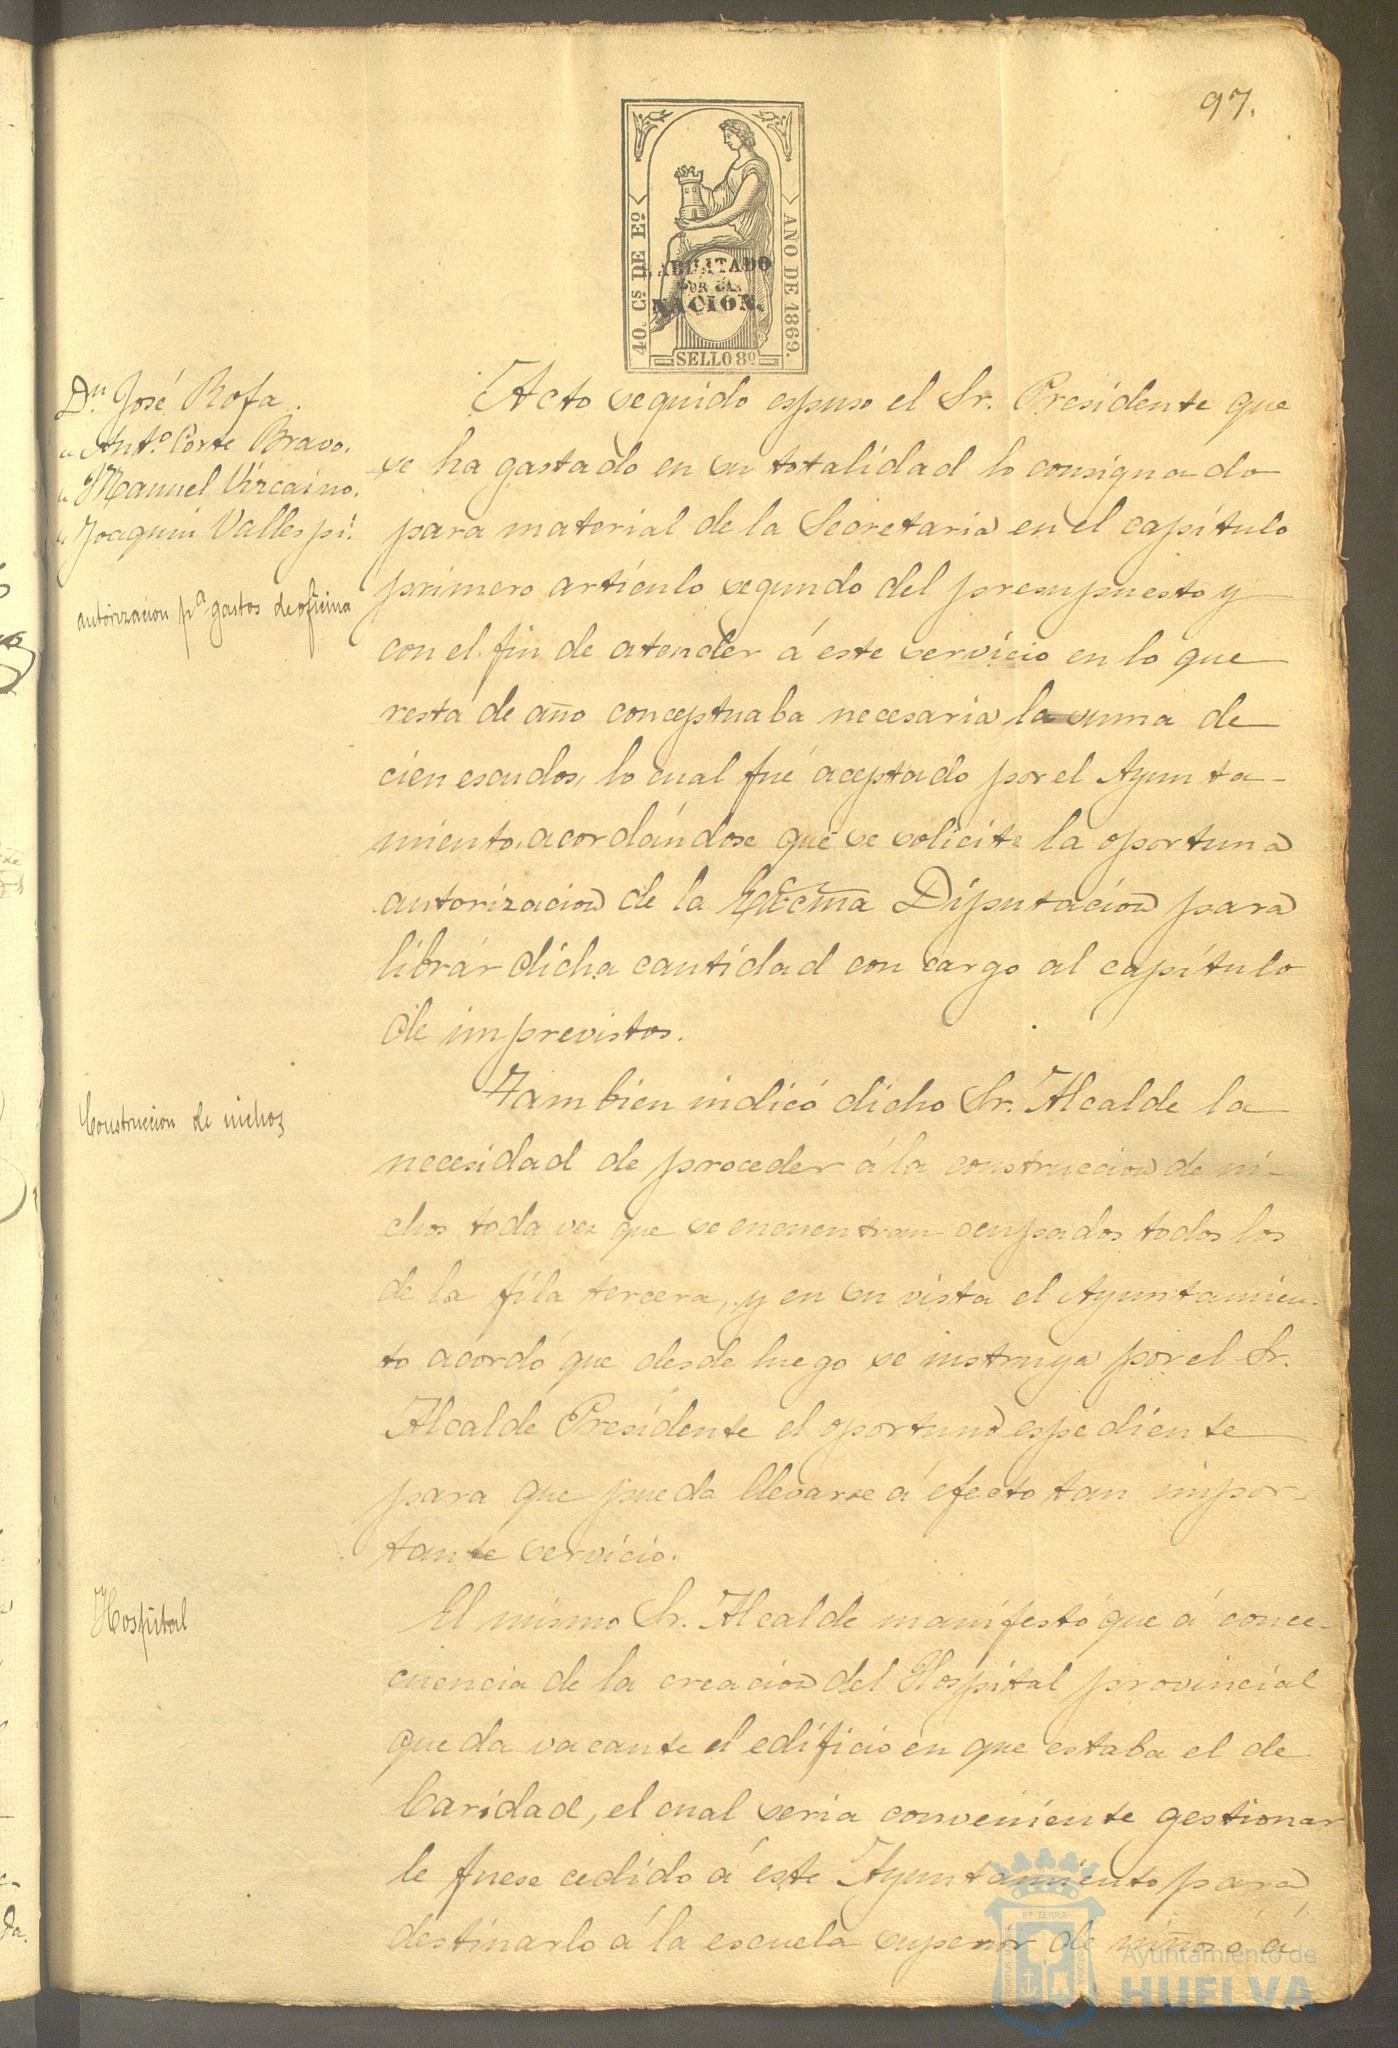 97.
40. Cs DE Eo
AÑO DE 1869.
HABILITADO
POR LA
NACION.
SELLO 8o
Dn. José Rofa.
" Anto. Corte Bravo.
" Manuel Vizcaino.
" Joaquin Vallespi.
autorizacion pa. gastos de oficina
Acto seguido espuso el Sr. Presidente que
se ha gastado en su totalidad lo consignado
para material de la Secretaria en el capítulo
primero artículo segundo del presupuesto y
con el fin de atender á este servicio en lo que
resta de año conceptuaba necesaria la suma de
cien escudos, lo cual fué aceptado por el Ayunta-
miento, acordándose que se solicite la oportuna
autorizacion de la Excma Diputación para
librar dicha cantidad con cargo al capítulo
de imprevistos.
Construccion de nichos
Tambien indicó dicho Sr. Alcalde la
necesidad de proceder á la construccion de ni-
chos toda vez que se encuentran ocupados todos los
de la fila tercera, y en su vista el Ayuntamien-
to acordó que desde luego se instruya por el Sr.
Alcalde Presidente el oportuno espediente
para que pueda llevarse á efecto tan impor-
tante servicio.
Hospital
El mismo Sr. Alcalde manifestó que á conse-
cuencia de la creacion del Hospital provincial
queda vacante el edificio en que estaba el de
Caridad, el cual seria conveniente gestionar
le fuese cedido á este Ayuntamiento para
destinarlo á la escuela superior de niños ó á
Ayuntamiento de
HUELVA